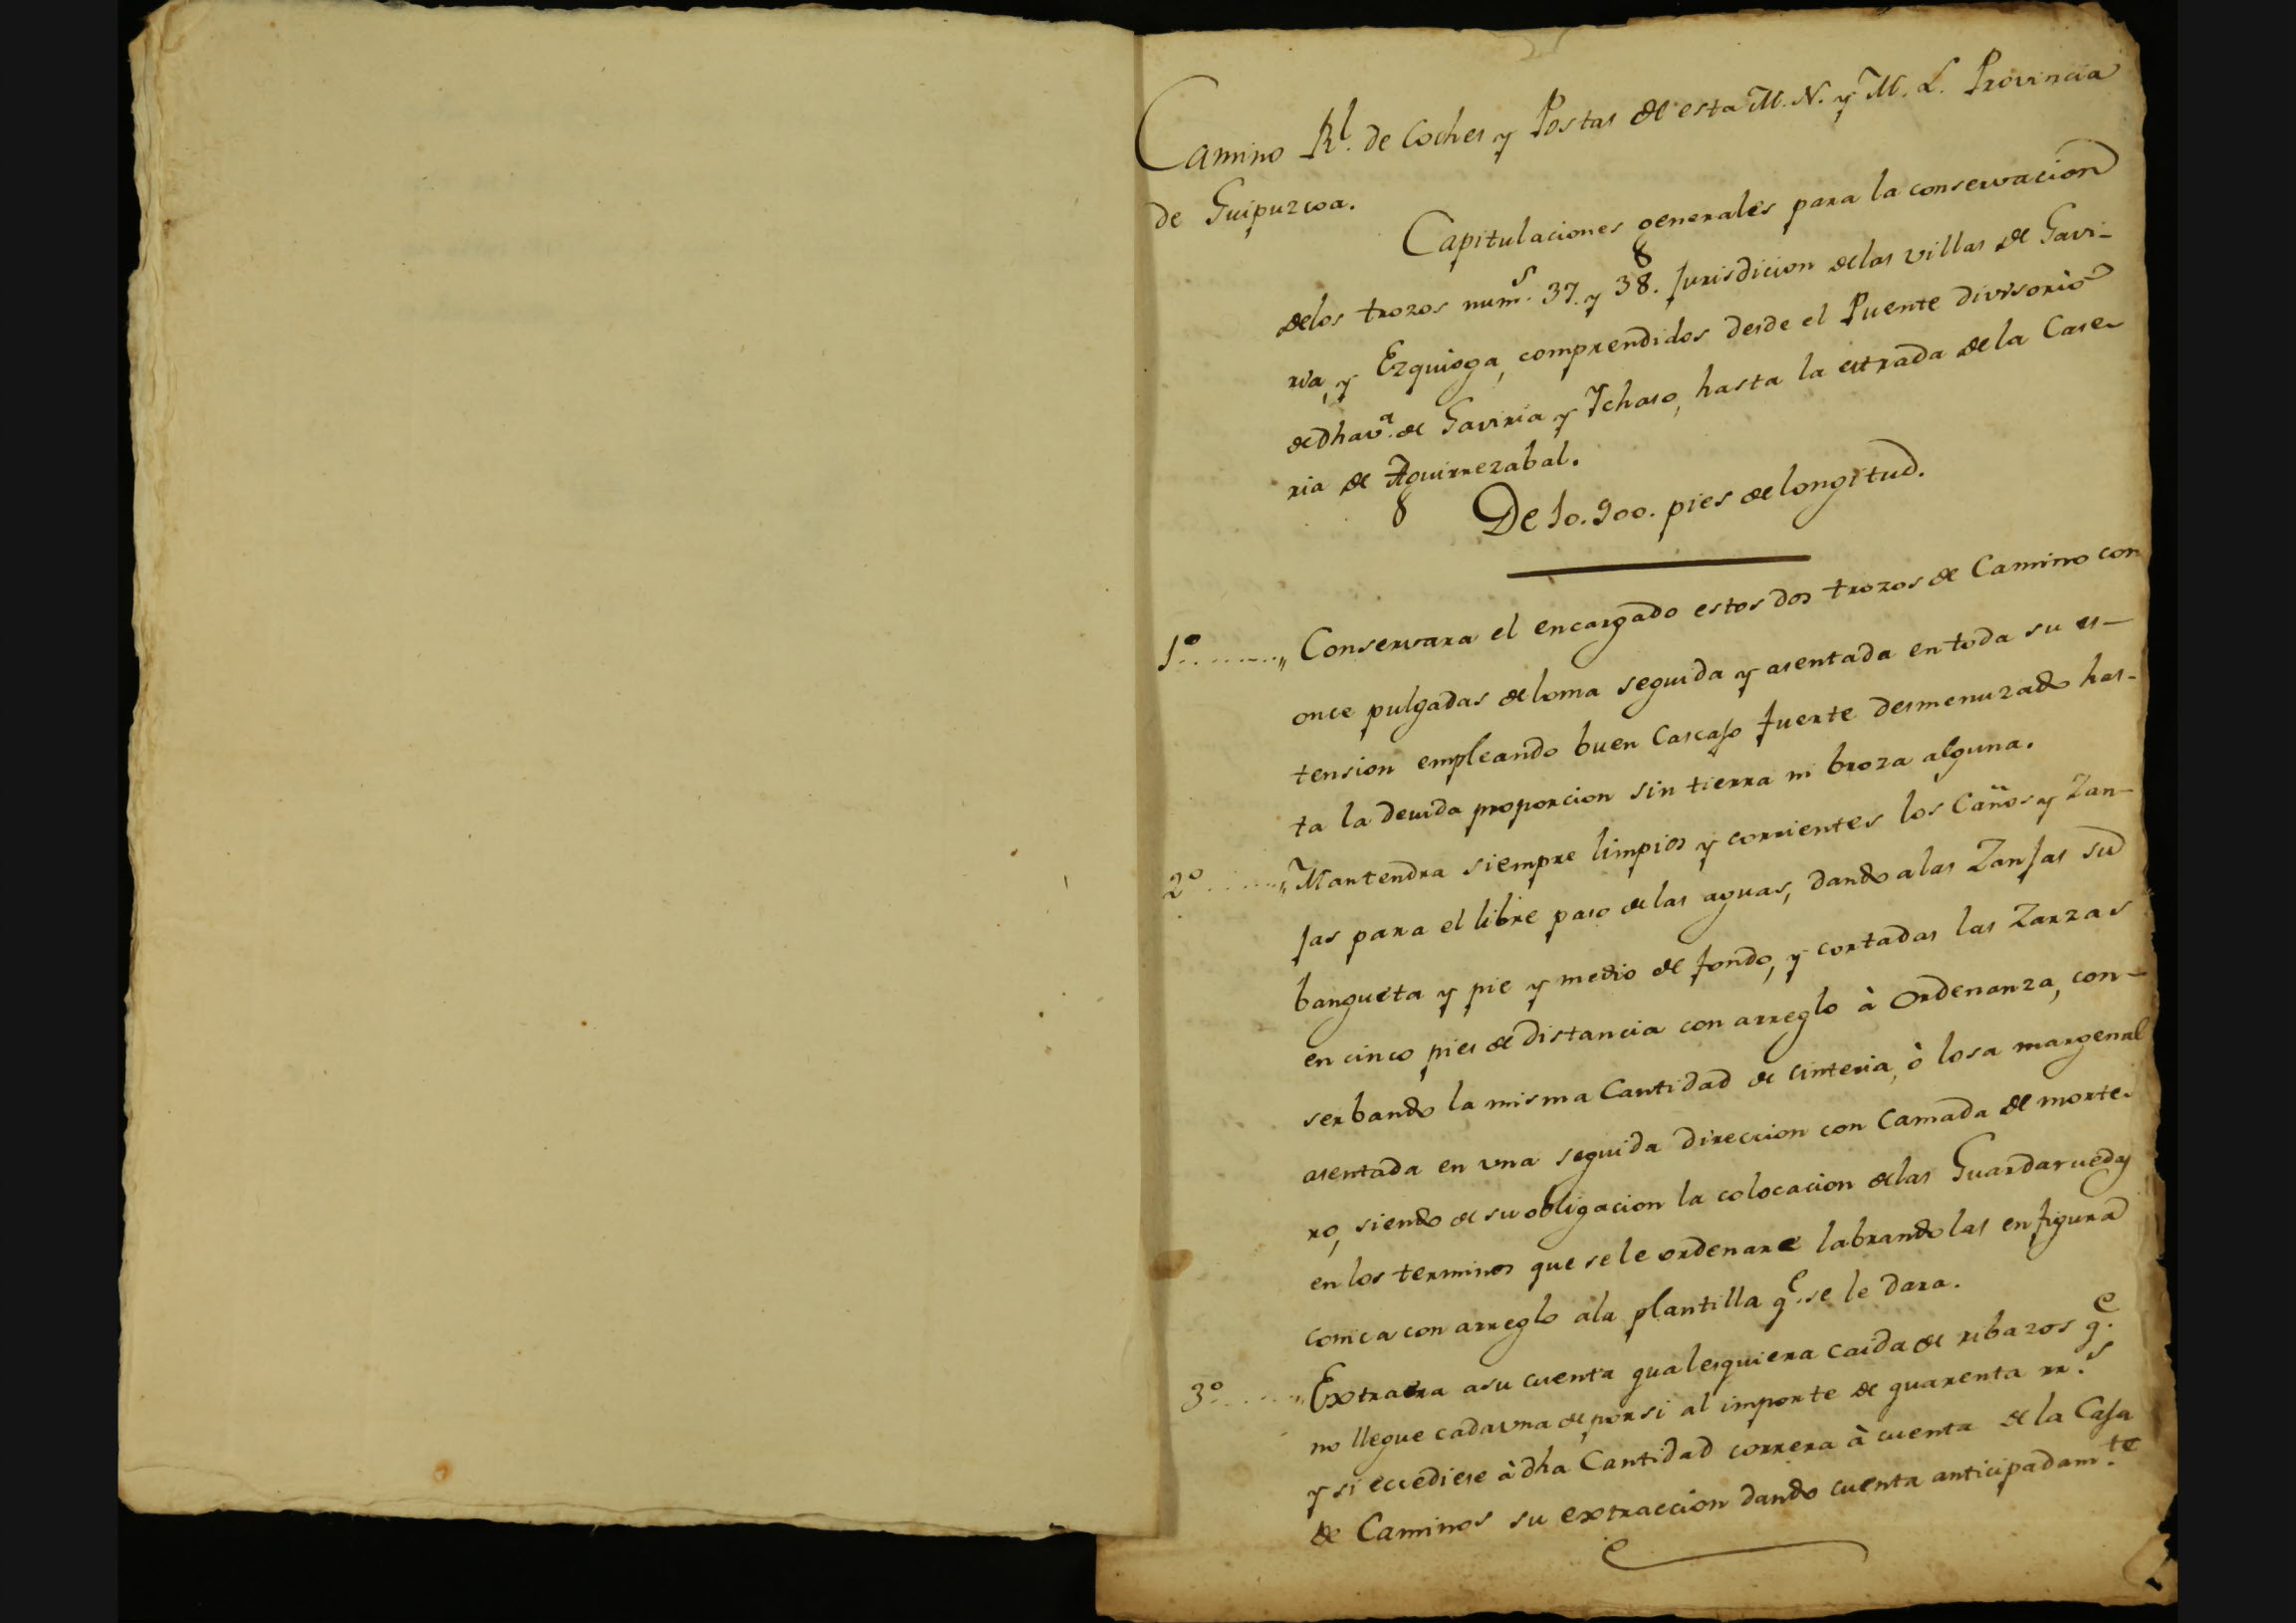 Camino Rl. de Coches y Postas de esta M. N. y M. L. Provincia
de Guipuzcoa.
Capitulaciones generales para la conservacion
delos trozos nums. 37. y 38. Jurisdicion delas villas de Gavi-
ria, y Ezquioga, comprendidos desde el Puente divisorio
de dha va. de Gaviria y Ichaso, hasta la estrada de la Case-
ria de Aguirrezabal.
De 10.900. pies de longitud.
1º........,, Conservara el encargado estos dos trozos de Camino con
once pulgadas de loma seguida y asentada en toda su es-
tension empleando buen Cascajo fuerte desmenuzado has-
ta la devida proporcion sin tierra ni broza alguna.
2º........,, Mantendra siempre limpios y corrientes los Caños y Zan-
jas para el libre paso de las aguas, dando a las Zanjas su
bangueta y pie y medio de fondo, y cortadas las Zarzas
en cinco pies de distancia con arreglo à Ordenanza, con-
serbando la misma Cantidad de cinteria, ò losa margenal
asentada en una seguida direccion con Camada de morte-
ro, siendo de su obligacion la colocacion delas Guardaruedas
en los terminos que se le ordenare labrandolas en figura
conica con arreglo ala plantilla qe. se le dara.
3º........,, Extraera asu cuenta qualesquiera caida de ribazos qe.
no llegue cada una de por si al importe de quarenta rrs.
y si ecediese à dha Cantidad correra à cuenta de la Caja
de Caminos su extraccion dando cuenta anticipadamte.